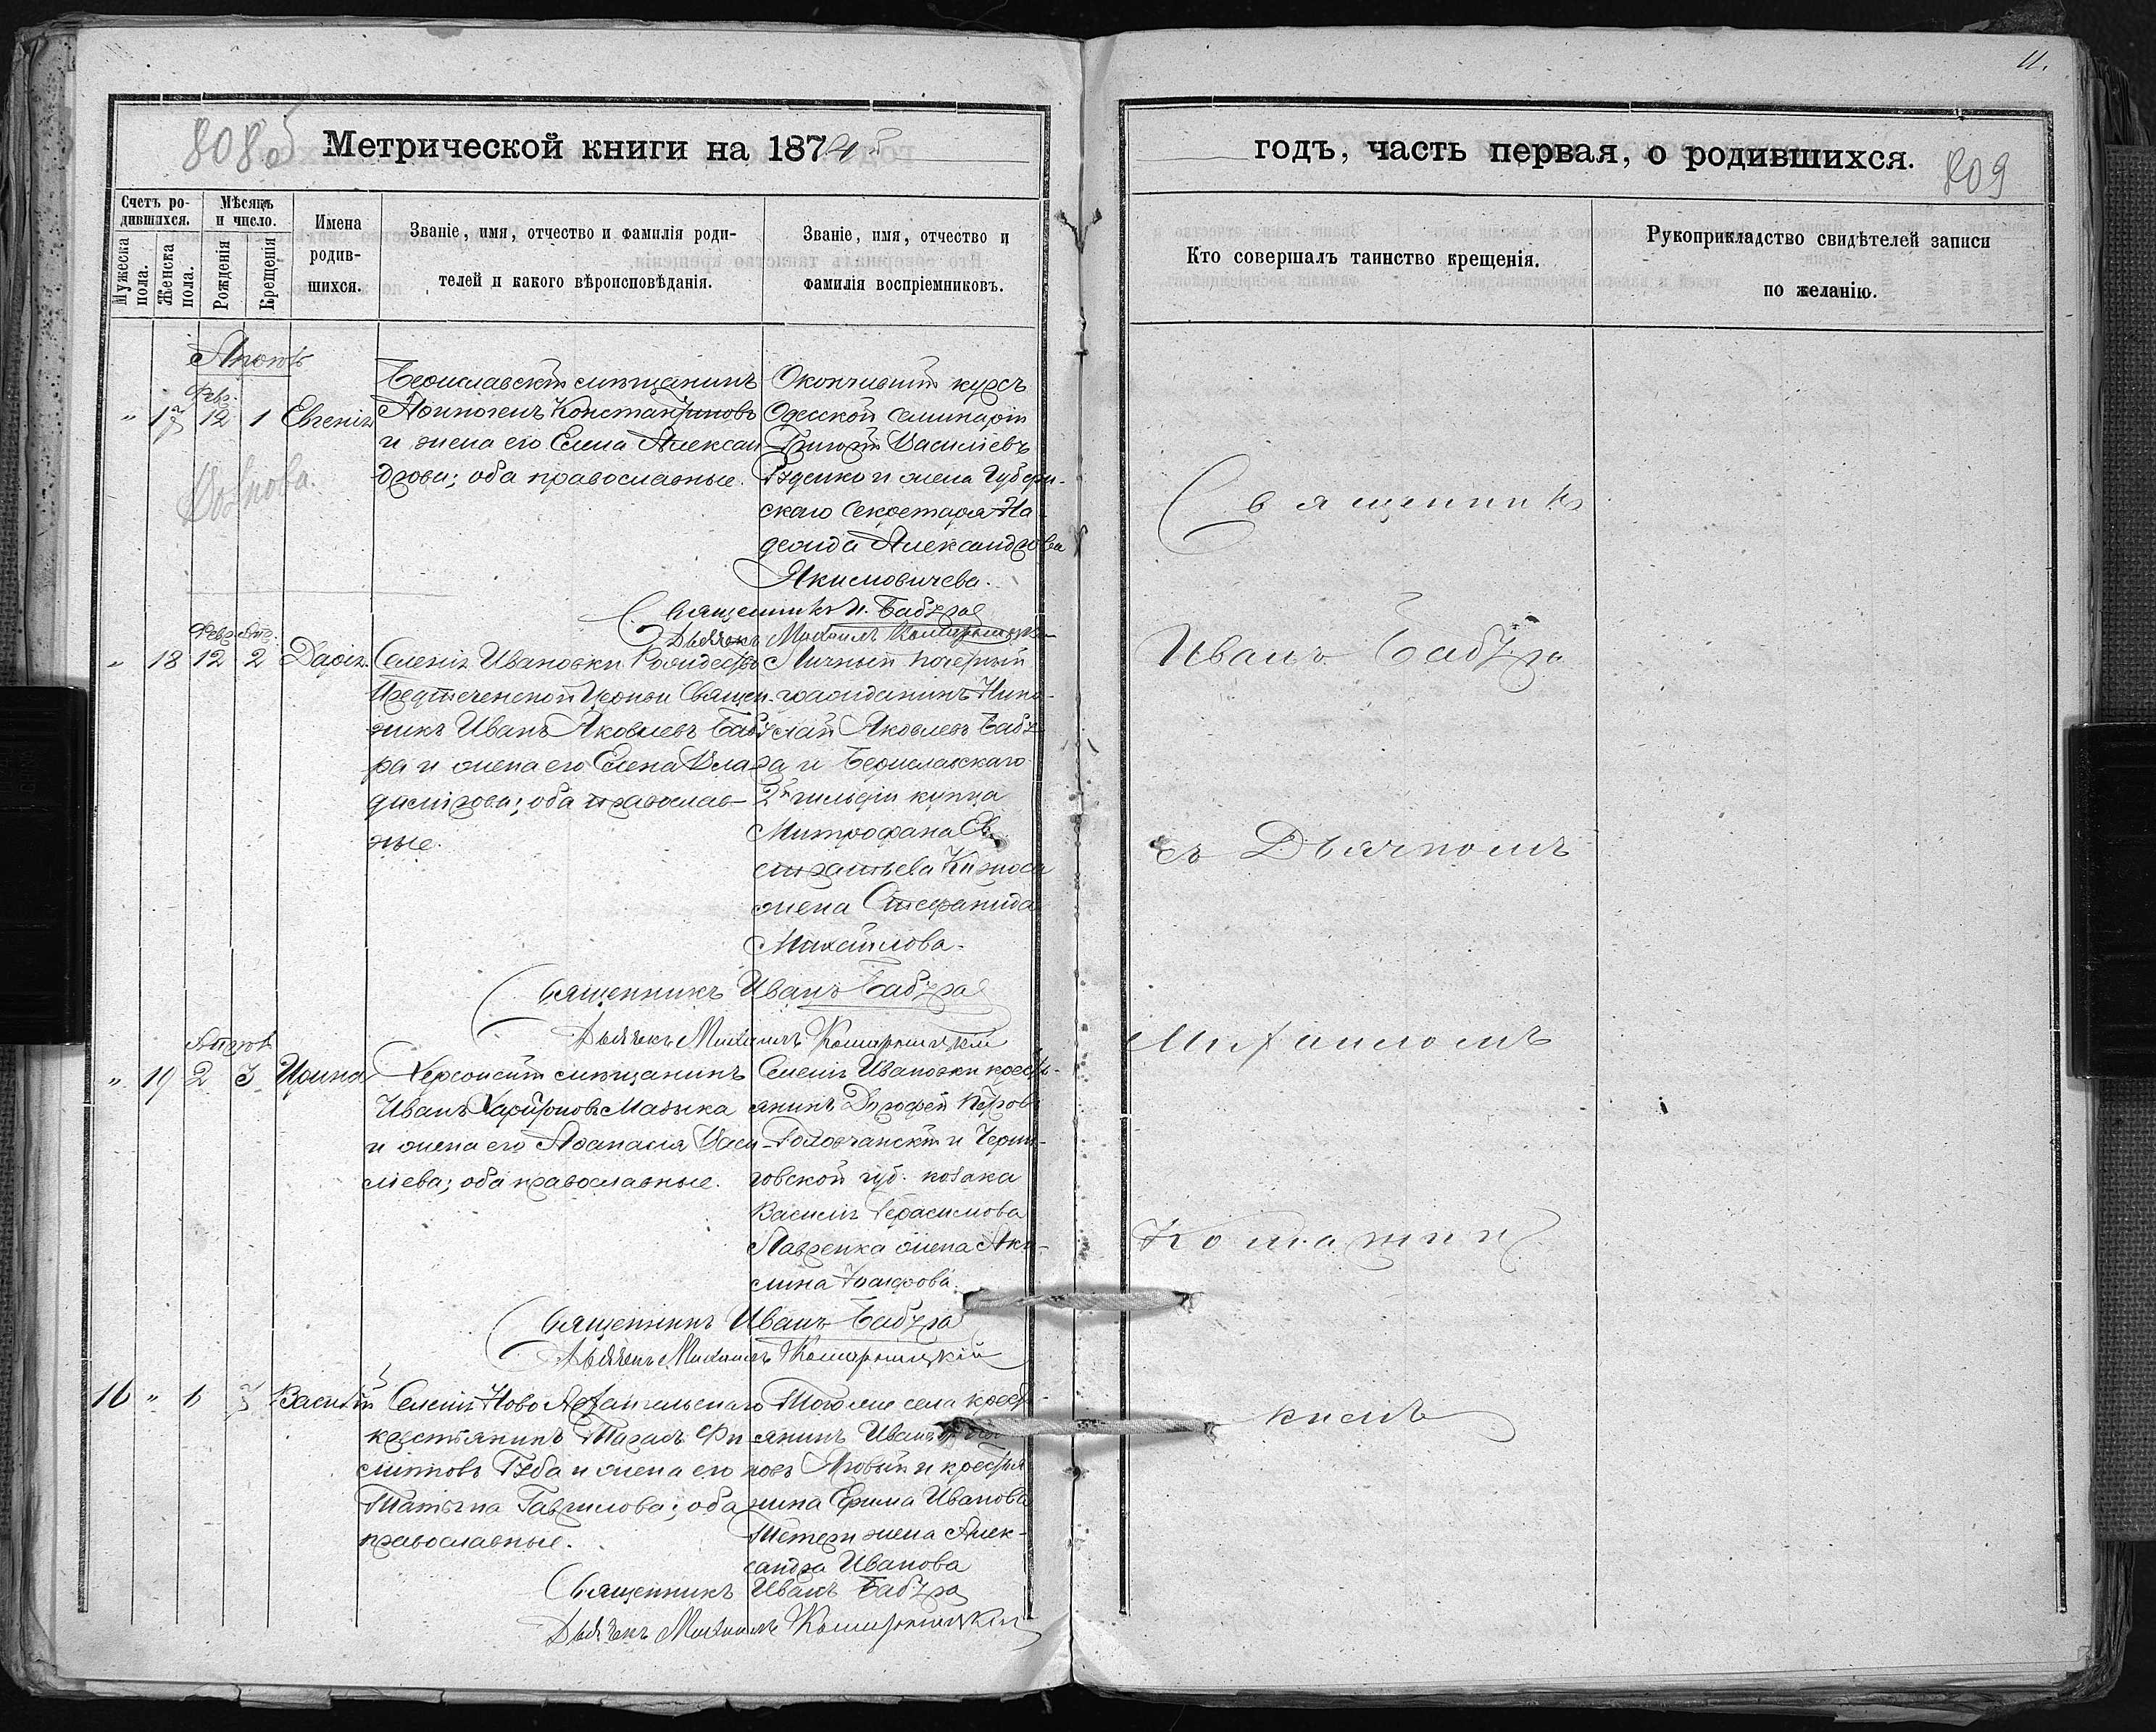 11.
808 об
Метрической книги на 1874й
годъ, часть первая, о родившихся.
809
Счетъ ро-
дившихся.
Мужеска
пола.
Женска
пола.
Мѣсяцъ
и число.
Рожденія
Крещенія
Имена
родив-
шихся.
Званіе, имя, отчество и фамилія роди-
телей и какого вѣроисповѣданія.
Званіе, имя, отчество и
фамилія воспріемниковъ.
Кто совершалъ таинство крещенія.
Рукоприкладство свидѣтелей записи
по желанію.
Февр.
" 17 12 1 Евгенія
Бериславскій мѣщанинъ
Константиновъ
и жена его Елена Алексан
дрова; оба православные.
Окончившій курсъ
Одесской семинаріи
Григорій Василіевъ
Руденко и жена Губерн-
скаго Секретаря На-
дежда Александрова
Якимовичева.
Священникъ И. Бабура
Дьячекъ Михаилъ
Февр. Апр.
" 18 12 2 Дарія
Селенія Ивановки Рождество
Предтеченской Церкви Священ-
никъ Иванъ Яковлевъ Бабу
ра и жена его Елена Вла-
димірова; оба православ-
ные.
Личный почетный
гражданинъ Нико-
лай Яковлевъ Бабу
ра и Бериславскаго
2й гильдіи купца
Митрофана Ев
жена Стефанида
Михайлова.
Священникъ Иванъ Бабура
Дьячекъ Михаилъ
" 19 2 3 Ирина
Херсонскій мѣщанинъ
Иванъ Харитоновъ
и жена его Афанасія Васи-
лієва; оба православные.
Селенія Ивановки крестъ-
янинъ Дорофей Петровъ
и Черни-
говской губ. козака
Василія Герасимова
Лавренка жена Аку-
лина
Священникъ Иванъ Бабура
Дьячекъ Михаилъ
16 " 6 7 Василій
Селенія Ново Архангельскаго
крестьянинъ Тарасъ Фи
липповъ Губа и жена его
Татьяна Гаврилова; оба
православные.
Тогоже села крест-
янинъ Иванъ
новъ Яровый и крестья
нина Ефима Иванова
Тетери жена Алек-
сандра Иванова
Священникъ Иванъ Бабура
Дьячекъ Михаилъ
Священникъ
Иванъ Бабура
съ Дьячкомъ
Михаиломъ
кимъ